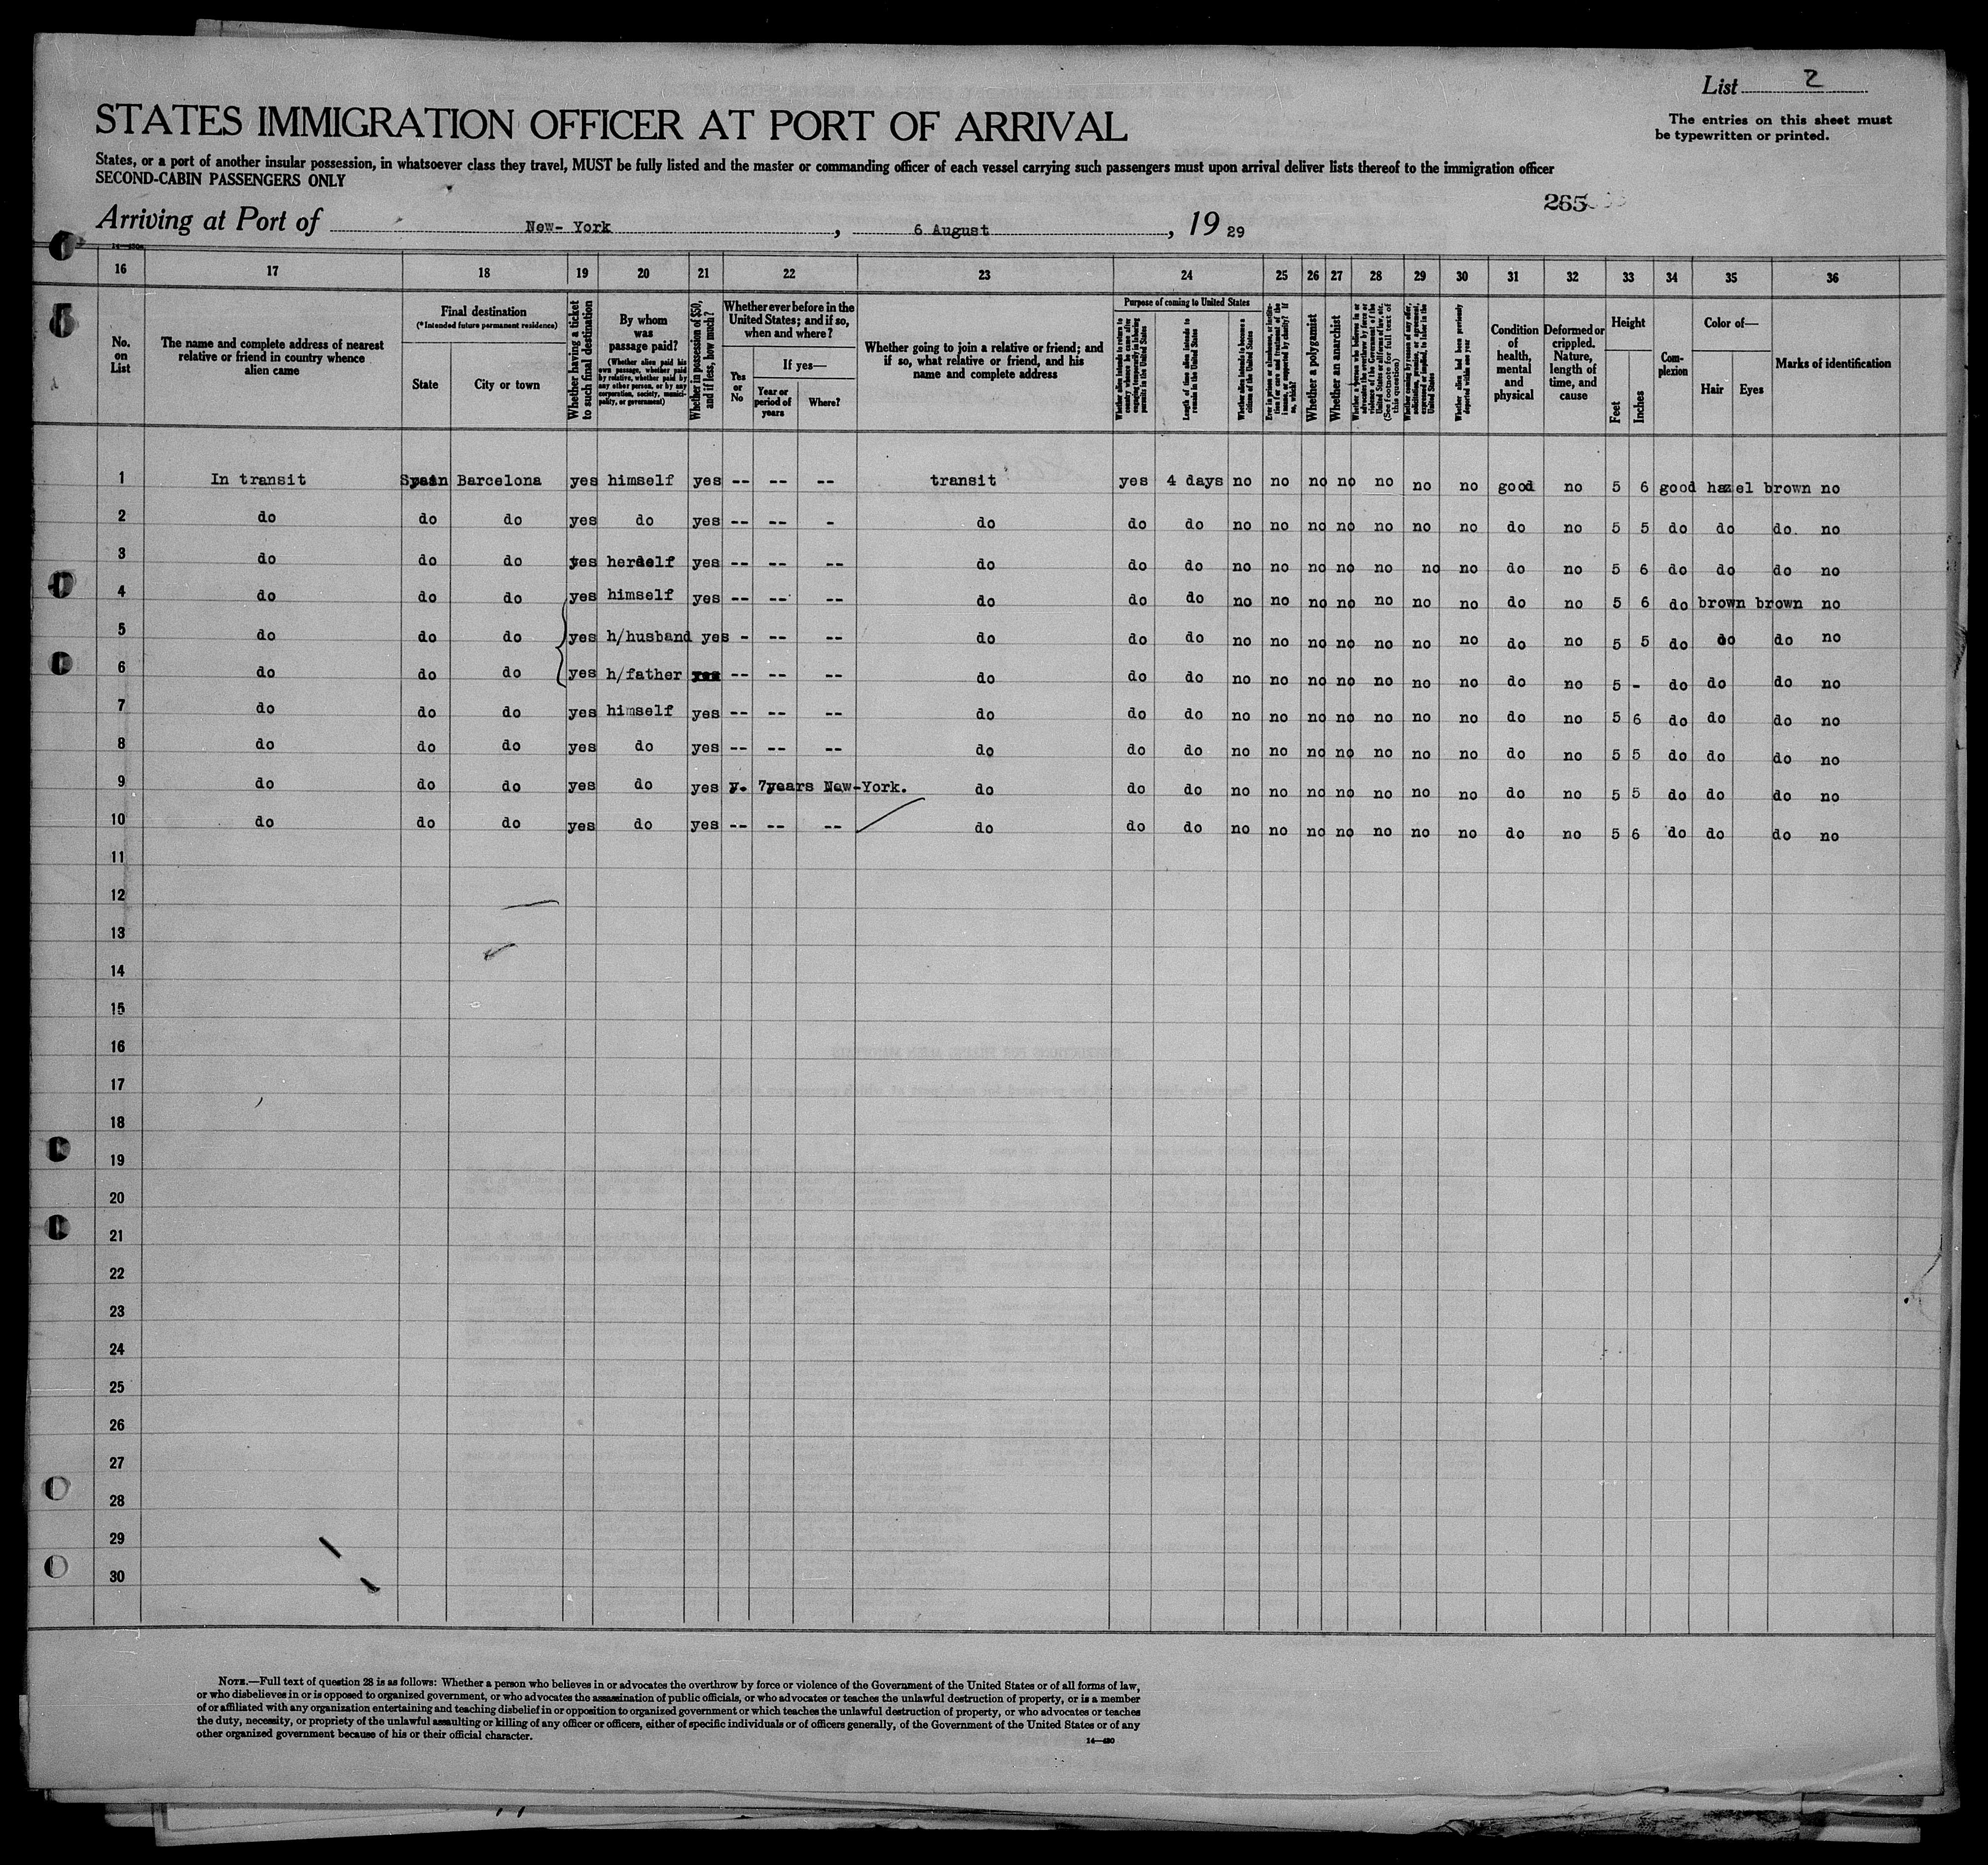 List 2
The entries on this sheet must
be typewritten or printed.
STATES IMMIGRATION OFFICER AT PORT OF ARRIVAL
States, or a port of another insular possession, in whatsoever class they travel, MUST be fully listed and the master or commanding officer of each vessel carrying such passengers must upon arrival deliver lists thereof to the immigration officer
SECOND-CABIN PASSENGERS ONLY
265
Arriving at Port of New- York, 6 August, 19 29
16 17 18 19 20 21 22 23 24 25 26 27 28 29 30 31 32 33 34 35 36
No. on List
The name and complete address of nearest relative or friend in country whence alien came
Final destination
(*Intended future permanent residence)
State
City or town
Whether having a ticket to such final destination
By whom was passage paid?
(Whether alien paid his own passage, whether paid by relative, whether paid by any other person, or by any corporation, society, municipality, or government)
Whether in possession of $50, and if less, how much?
Whether ever before in the United States; and if so, when and where?
Yes or No
If yes—
Year or period of years
Where?
Whether going to join a relative or friend; and if so, what relative or friend, and his name and complete address
Purpose of coming to United States
Whether alien intends to return to country whence he came after engaging temporarily in laboring pursuits in the United States
Length of time alien intends to remain in the United States
Whether alien intends to become a citizen of the United States
Ever in prison or almshouse, or institution for care and treatment of the insane, or supported by charity? If so, which?
Whether a polygamist
Whether an anarchist
Whether a person who believes in or advocates the overthrow by force or violence of the Government of the United States or all forms of law, etc. (See footnote for full text of this question)
Whether coming by reason of any offer, solicitation, promise, or agreement, expressed or implied, to labor in the United States
Whether alien had been previously deported within one year
Condition of health, mental and physical
Deformed or crippled. Nature, length of time, and cause
Height
Feet
Inches
Complexion
Color of—
Hair
Eyes
Marks of identification
1 In transit Spain Barcelona yes himself yes -- -- -- transit yes 4 days no no no no no no no good no 5 6 good hazel brown no
2 do do do yes do yes -- -- - do do do no no no no no no no do no 5 5 do do do. no
3 do do do yes herself yes -- -- -- do do do no no no no no no no do no 5 6 do do do no
4 do do do yes himself yes -- -- -- do do do no no no no no no no do no 5 6 do brown brown no
5 do do do yes h/husband yes - -- -- do do do no no no no no no no do no 5 5 do do do no
6 do do do yes h/father yes -- -- -- do do do no no no no no no no do no 5 - do do do no
7 do do do yes himself yes -- -- -- do do do no no no no no no no do no 5 6 do do do no
8 do do do yes do yes -- -- -- do do do no no no no no no no do no 5 5 do do do no
9 do do do yes do yes y. 7years New-York. do do do no no no no no no no do no 5 5 do do do no
10 do do do yes do yes -- -- -- do do do no no no no no no no do no 5 6 do do do no
11
12
13
14
15
16
17
18
19
20
21
22
23
24
25
26
27
28
29
30
NOTE.—Full text of question 28 is as follows: Whether a person who believes in or advocates the overthrow by force or violence of the Government of the United States or of all forms of law,
or who disbelieves in or is opposed to organized government, or who advocates the assassination of public officials, or who advocates or teaches the unlawful destruction of property, or is a member
of or affiliated with any organization entertaining and teaching disbelief in or opposition to organized government or which teaches the unlawful destruction of property, or who advocates or teaches
the duty, necessity, or propriety of the unlawful assaulting or killing of any officer or officers, either of specific individuals or of officers generally, of the Government of the United States or of any
other organized government because of his or their official character.
14—480